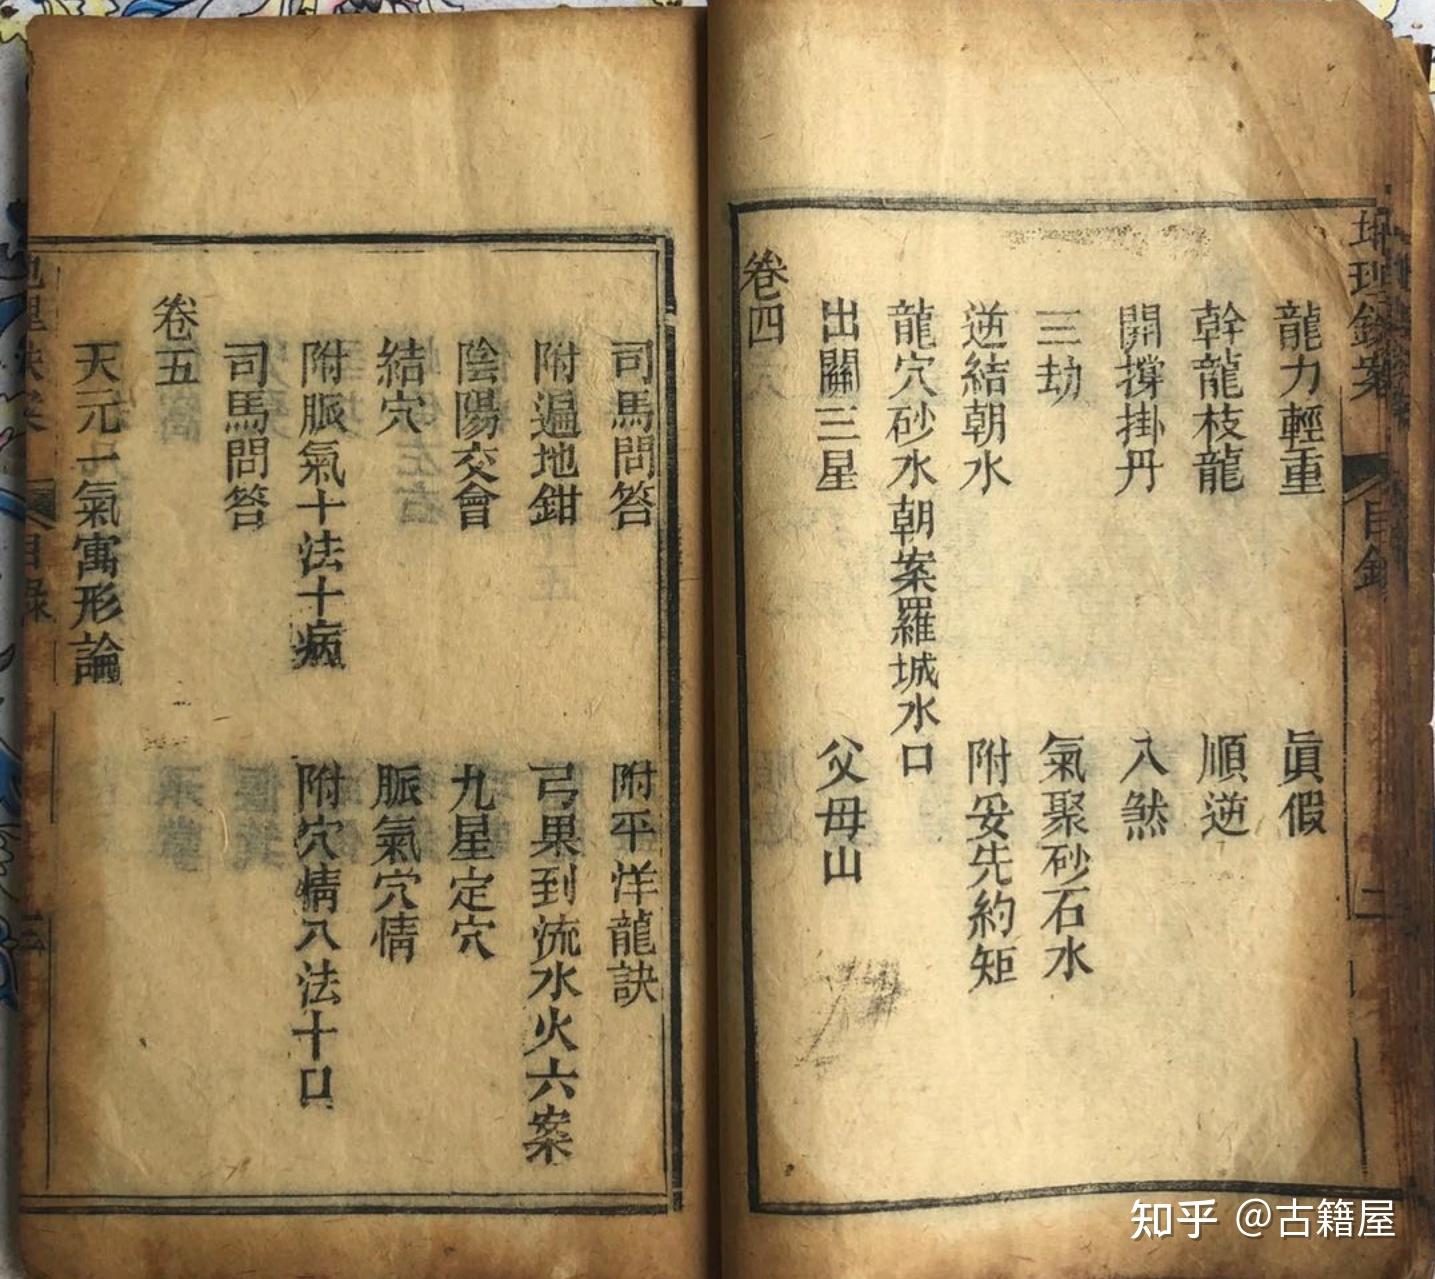 目錄
二
龍力輕重 眞假
幹龍枝龍 順逆
開撐掛丹 入煞
三劫 氣聚砂石水
逆結朝水 附妥先約矩
龍穴砂水朝案羅城水口
出關三星 父母山
卷四
司馬問答 附平洋龍訣
附遍地鉗 弓果到流水火六案
陰陽交會 九星定穴
結穴 脈氣穴情
附脈氣十法十病 附穴情八法十口
司馬問答
卷五
天元一氣寓形論
目錄
三
知乎 @古籍屋